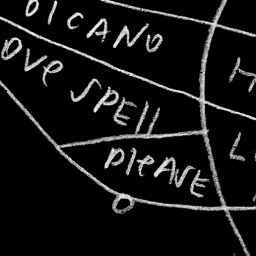 OLCANO
OVE SPELL
PLEASE
H
L